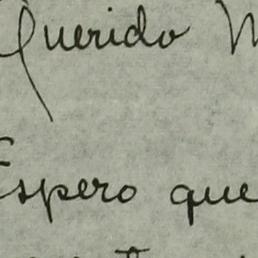 Querido M
Espero que